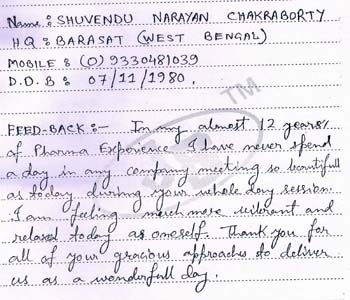 Name : SHUVENDU NARAYAN CHAKRABORTY
HQ : BARASAT (WEST BENGAL)
MOBILE : (0) 9330481039
D.O.B : 07/11/1980.
TM
FEED-BACK :- In my almost 12 years
of Pharma Experience I have never spend
a day in any company meeting so beautifull
as today during your whole day session.
I am feeling much more vibrent and
relaxed today as oneself. Thank you for
all of your gracious approaches to deliver
us as a wonderfull day.